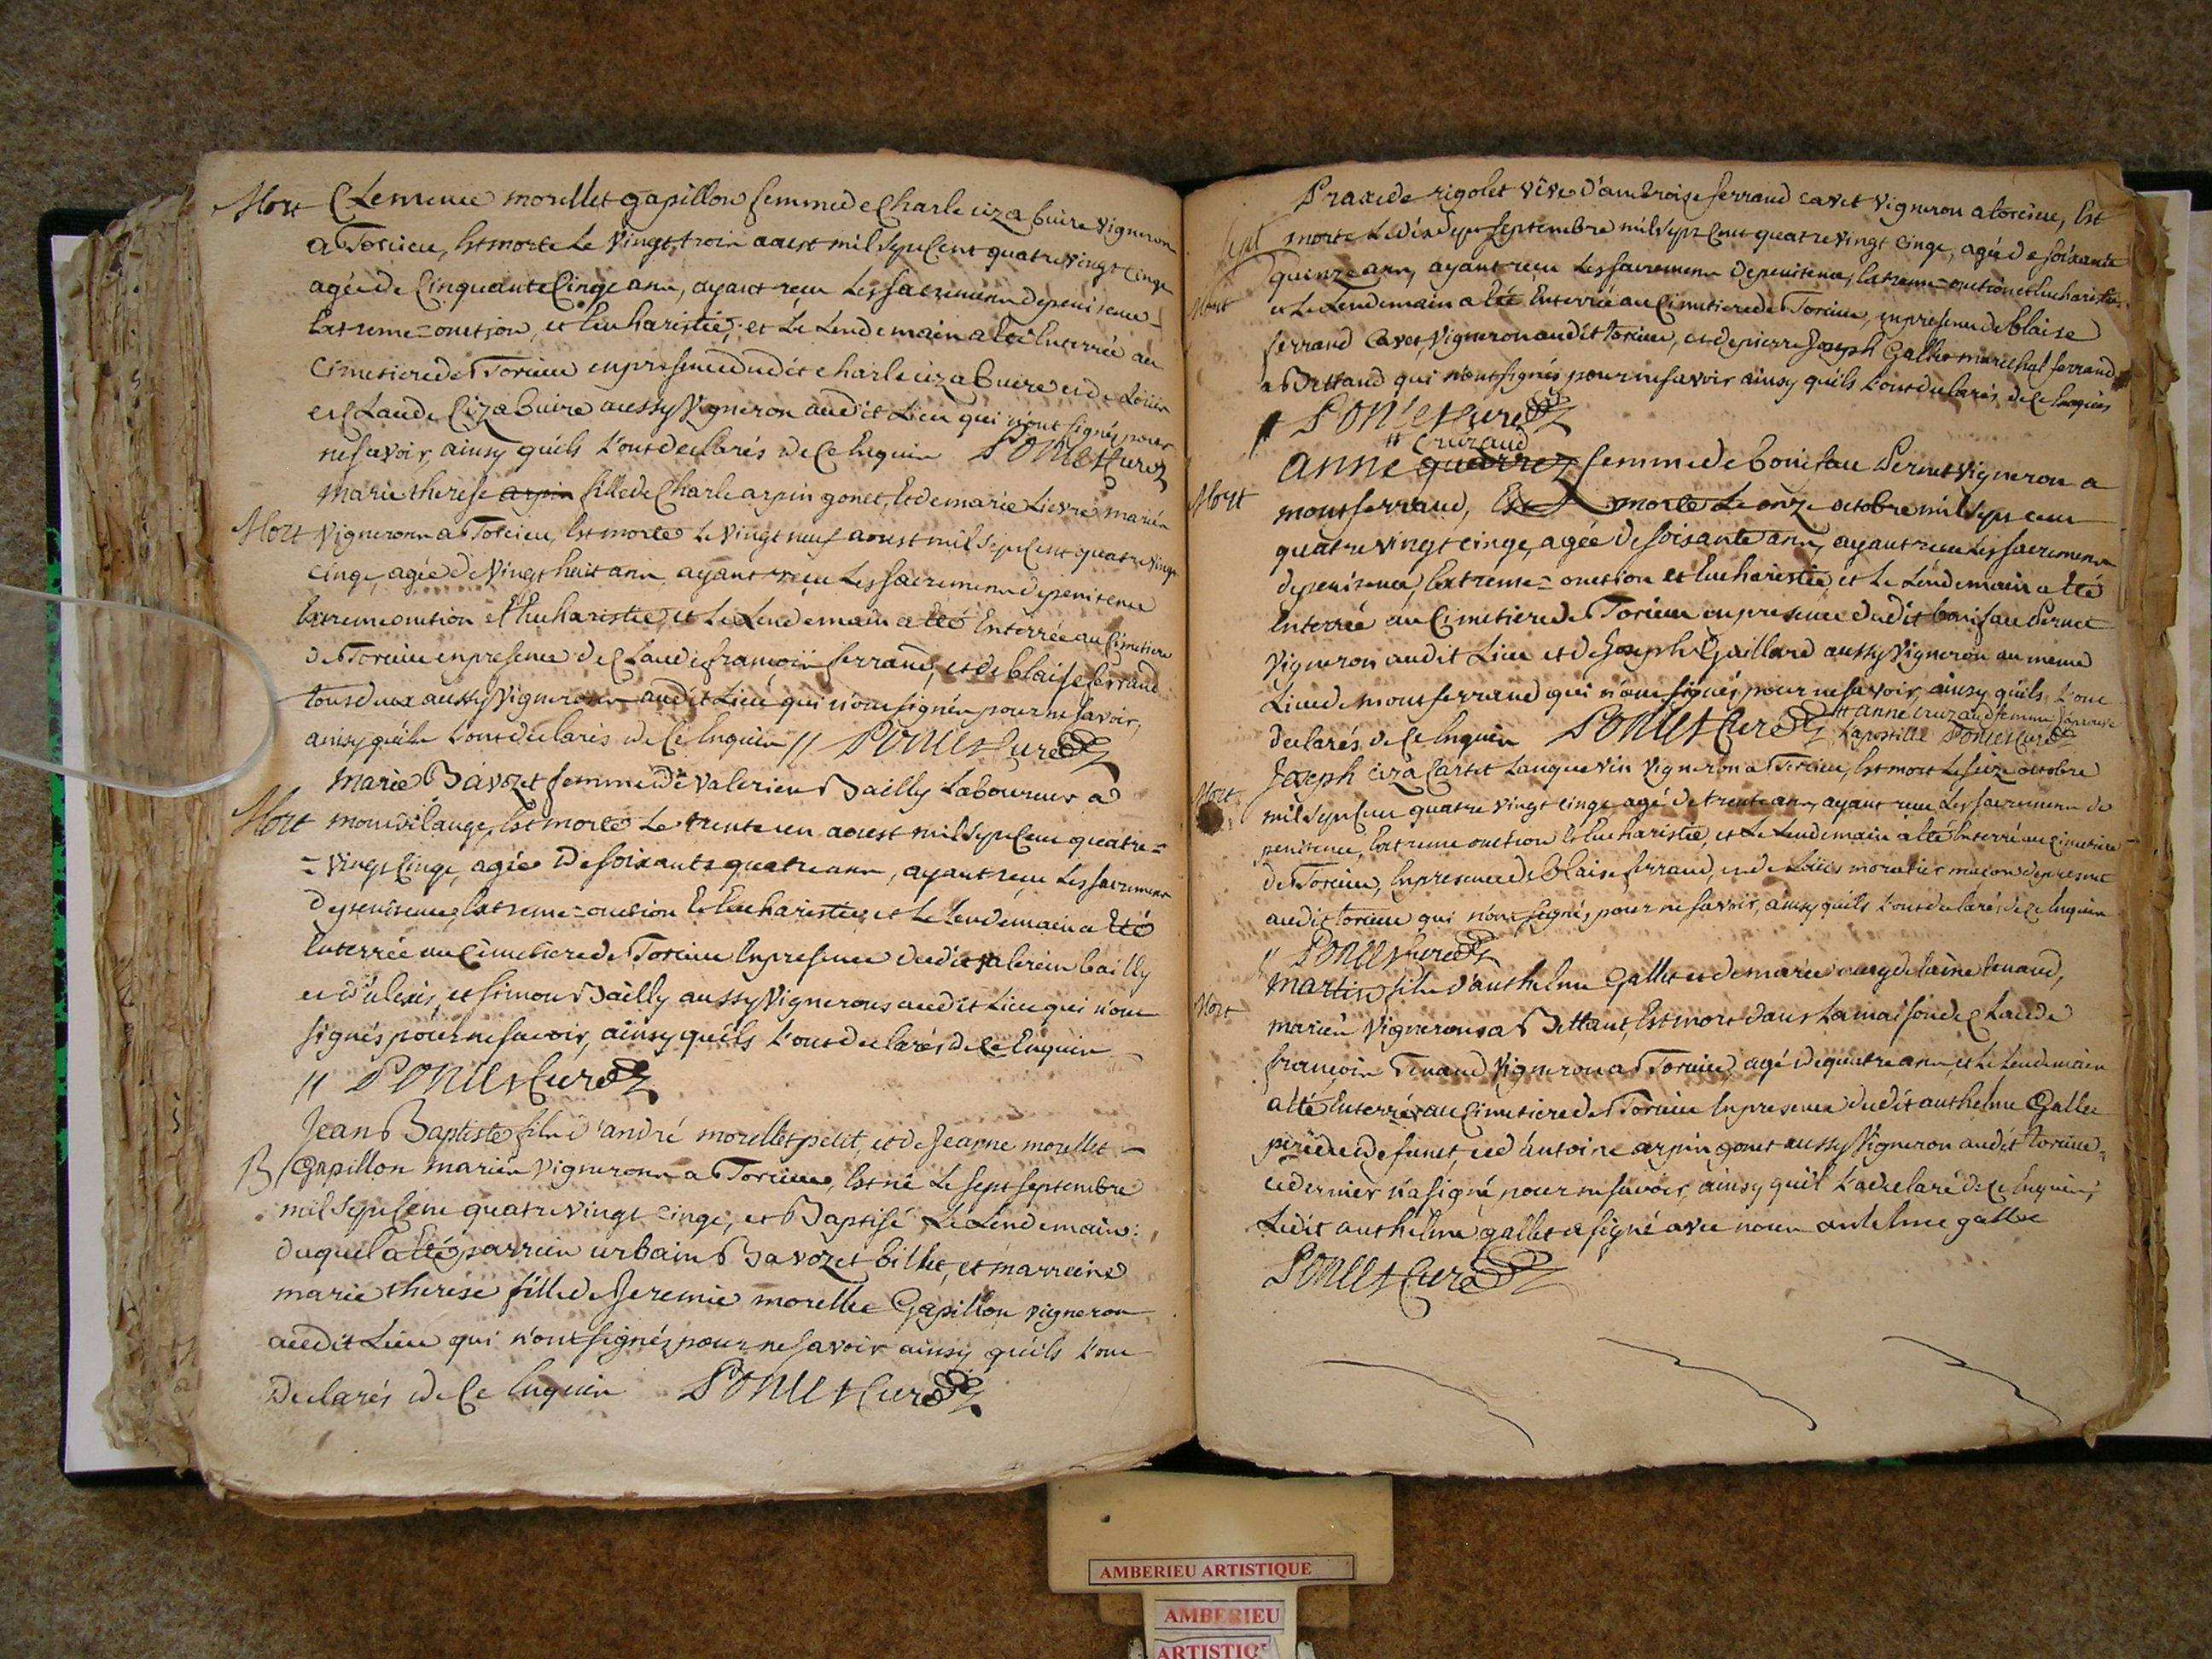 Mort Clemence morellet gapillon femme de Charle ciza buire vigneron
a Torcieu, Est morte Le vingt trois aoust mil sept Cent quatre vingt cinqe
agée de Cinquante Cinqe ans, ayant reçu Les sacremens de penitence
Extreme=onction, et Eucharistie; et Le Lendemain a été Enterrée au
Cimetiere de Torcieu en presence dudit charle ciza buire et de Loüis
et Claude Ciza buire aussy vigneron audit Lieu qui n'ont signés pour
ne savoir, ainsy qu'ils L'ont declarés de Ce Enquis PONCET Curé
marie therese arpin fille de Charle arpin gonet, Et de marie Lievre mariés
Mort vignerons a Torcieu, Est morte Le vingt neuf aoust mil sept Cent quatre vingt
cinqe, agée de vingt huit ans ayant reçu Les sacremens de penitence
Extreme onction et Eucharistie, et Le Lendemain a été Enterrée au Cimetiere
de Torcieu en presence de Claude françois ferrand, et de blaise ferrand
tous deux aussy vignerons audit Lieu qui n'ont signés pour ne savoir,
ainsy qu'ils L'ont declarés de Ce Enquis // PONCET Curé
marie Bavozet femme de valerien Bailly Laboureur a
Mort montvilange, Est morte Le trente un aoust mil sept Cent quatre=
=vingt Cinqe, agée de soixante quatre ans, ayant reçu Les sacremens
de penitence, Extreme=onction Et Eucharistie, et Le Lendemain a été
Enterrée au Cimetiere de Torcieu En presence dudit valerien bailly
et d'alexis, et simon Bailly aussy vignerons audit Lieu qui n'ont
signés pour ne savoir, ainsy qu'ils L'ont declarés de Ce Enquis
// PONCET Curé
Jean Baptiste fils d'andré morellet petit, et de Jeanne morellet
B Gapillon mariés vignerons a Torcieu, Est né Le sept septembre
mil sept Cent quatre vingt cinqe, et Baptisé Le Lendemain:
duquel a été parrein urbain Bavozet billet, et marreine
marie therese fille de Jeremie morellet Gapillon vigneron
audit Lieu qui n'ont signés pour ne savoir ainsy qu'ils L'ont
Declarés de Ce Enquis PONCET Curé
Praxede rigolet vêve d'ambroise ferrand cavet vigneron a torcieu, Est
morte Le dix sept septembre mil sept Cent quatre vingt cinqe, agée de soixante
quinze ans, ayant reçu Les sacremens de penitence, Extreme=onction et Eucharistie
Mort et Le Lendemain a été Enterrée au Cimetiere de Torcieu, en presence de blaise
ferrand Cavet vigneron audit torcieu, et de pierre Joseph Gallet marechal ferrand
a Bettand qui n'ont signés pour ne savoir ainsy qu'ils L'ont declarés de Ce Enquis
// PONCET Curé
// Cruzaud
anne guerrez femme de boniface Pernet vigneron a
Mort montferrand, Est morte Le onze octobre mil sept cent
quatre vingt cinqe, agée de soisante ans, ayant reçu Les sacremens
de penitence, Extreme=onction et Eucharistie, et Le Lendemain a été
Enterrée au Cimetiere de Torcieu en presence dudit boniface Pernet
vigneron audit Lieu et de Joseph Gaillard aussy vigneron au meme
Lieu de montferrand qui n'ont signés pour ne savoir, ainsy qu'ils L'ont
declarés de Ce Enquis PONCET Curé // anne cruzaud femme J'aprouve
L'apostille PONCET Curé
Joseph ciza Cartet Languevin vigneron a Torcieu, Est mort Le seize octobre
Mort mil sept Cent quatre vingt cinqe agé de trente ans, ayant reçu Les sacremens de
penitence, Extreme onction Et Eucharistie, et Le Lendemain a été Enterré au Cimetiere
de Torcieu, En presence de Blaise ferrand, et de Loüis moratier maçon de present
audit torcieu qui n'ont signés pour ne savoir, ainsy qu'ils L'ont declarés de Ce Enquis
// PONCET Curé
martin fils d'anthelme Gallet et de marie tenand,
Mort mariés vignerons a Bettant, Est mort dans La maison de Claude
françois Tenand vigneron a Torcieu, agé de quatre ans, et Le Lendemain
a été Enterré au Cimetiere de Torcieu En presence dudit anthelme Gallet
pere du defunct et d'antoine arpin gonet aussy vigneron audit torcieu=
ce dernier n'a signé pour ne savoir, ainsy qu'il L'a declaré de Ce Enquis,
Ledit anthelme gallet a signé avec nous antelme gallet
PONCET Curé
AMBERIEU ARTISTIQUE
AMBERIEU
ARTISTIQ